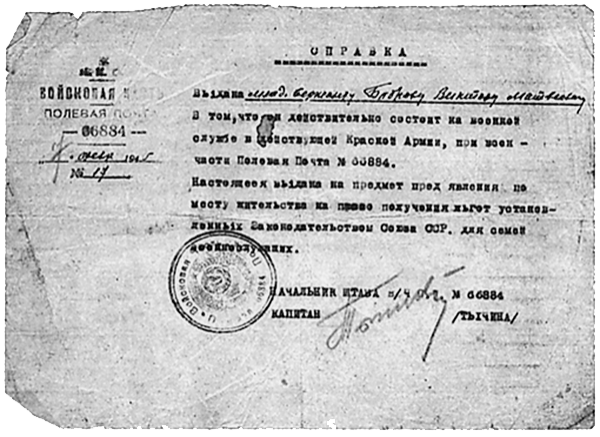 СПРАВКА
Н.К.О.
ВОЙСКОВАЯ ЧАСТЬ
ПОЛЕВАЯ ПОЧТА
— 66884 —
№ 17
Выдана млад. сержанту Боброву Виктору Матвеевичу
В том, что он действительно состоит на военной
службе в действующей Красной Армии, при воен -
части Полевая Почта № 66884.
Настоящее выдана на предмет пред'явления по
месту жительства на право получения льгот установ-
ленных Законодательством Союза ССР. для семей
военнослужащих.
НАЧАЛЬНИК ШТАБА в/ч № 66884
КАПИТАН /ТЫЧИНА/